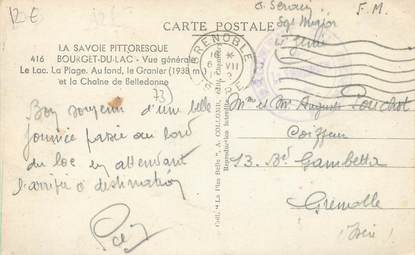 12 €
CARTE POSTALE
F. M.
LA SAVOIE PITTORESQUE
416 BOURGET-DU-LAC - Vue générale
Le Lac. La Plage. Au fond, le Granier (1938 m
et la Chaîne de Belledonne
73)
GRENOBLE
Bon souvenir d'une belle
journée passée au bord
du lac en attendant
l'arrivée à destination
Coll. "La Plus Belle", A. COLLOMB,
Mme et Mr Auguste Pouchot
Coiffeur
13. Bd Gambetta
Grenoble
(Isère)